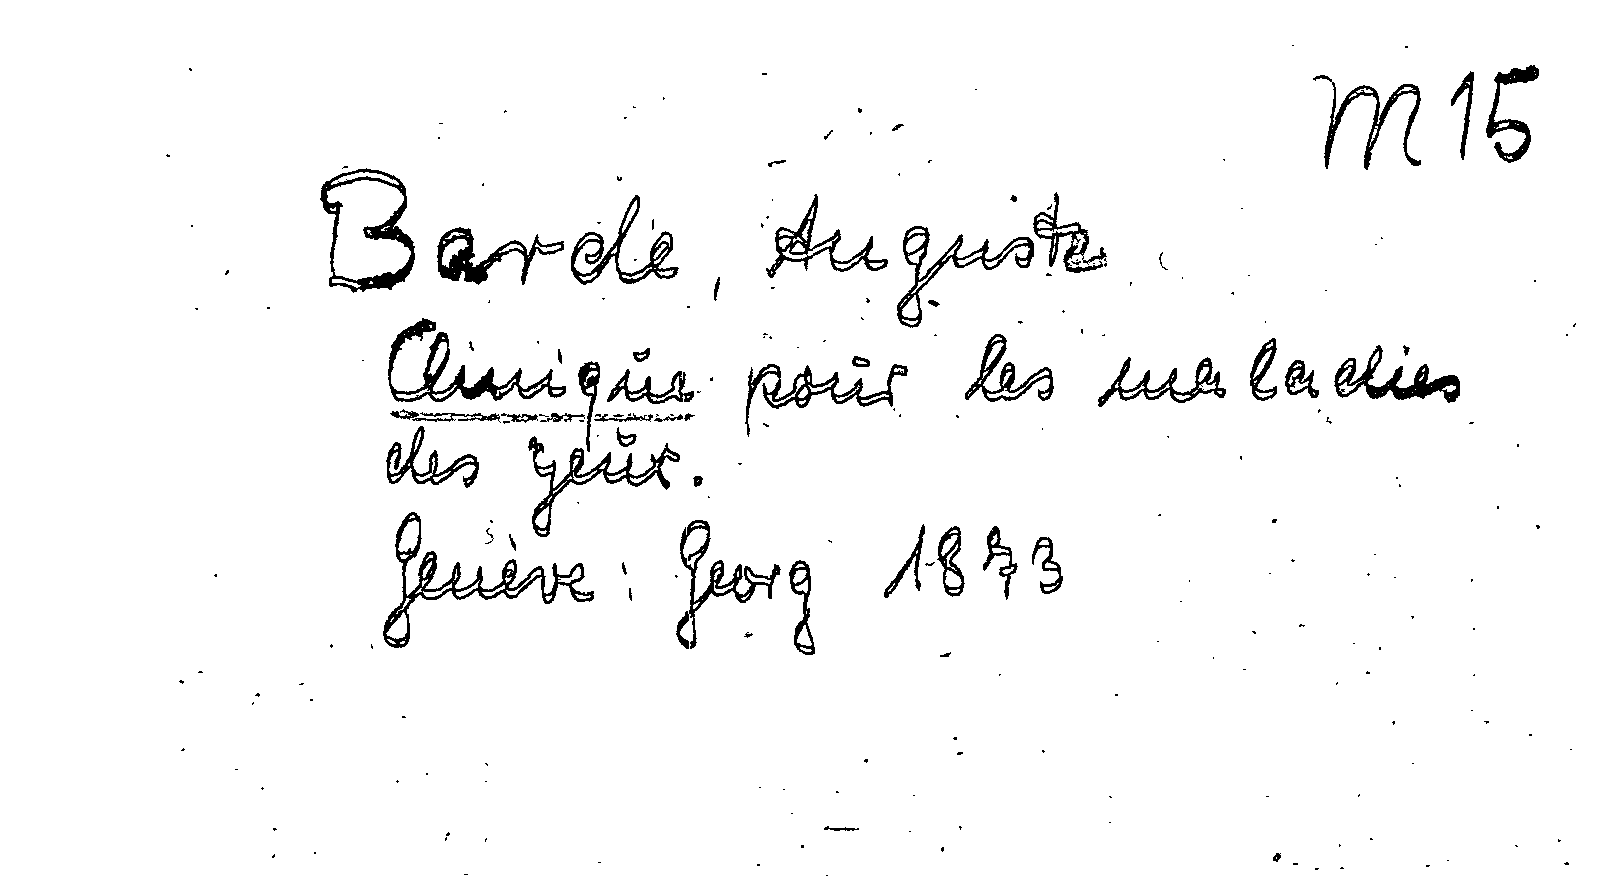 M 15
Barde, Auguste
Clinique pour les maladies
des yeux.
Genève: Georg 1873